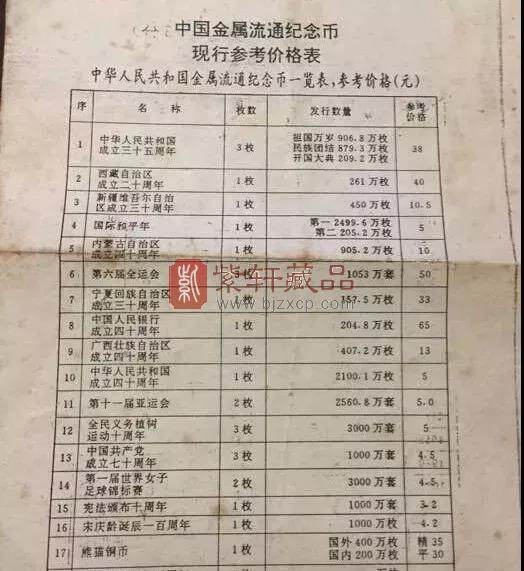 中国金属流通纪念币
现行参考价格表
中华人民共和国金属流通纪念币一览表,参考价格(元)
序 名 称 枚数 发行数量 参考价格
1 中华人民共和国成立三十五周年 3枚 祖国万岁 906.8 万枚 民族团结 879.3 万枚 开国大典 209.2 万枚 38
2 西藏自治区成立二十周年 1枚 261 万枚 40
3 新疆维吾尔自治区成立三十周年 1枚 450 万枚 10.5
4 国际和平年 1枚 第一 2499.6 万枚 第二 205.2 万枚 5
5 内蒙古自治区成立四十周年 1枚 905.2 万枚 10
6 第六届全运会 1053 万套 50
7 宁夏回族自治区成立三十周年 1枚 157.5 万枚 33
8 中国人民银行成立四十周年 1枚 204.8 万枚 65
9 广西壮族自治区成立三十周年 1枚 407.2 万枚 13
10 中华人民共和国成立四十周年 1枚 2100.1 万枚 5
11 第十一届亚运会 2枚 2560.8 万套 5.0
12 全民义务植树运动十周年 3枚 3000 万套 5
13 中国共产党成立七十周年 3枚 1000 万枚 4.5
14 第一届世界女子足球锦标赛 2枚 3000 万套 4.5
15 宪法颁布十周年 1枚 1000 万套 3.2
16 宋庆龄诞辰一百周年 1枚 1000 万枚 4.2
17 熊猫铜币 1枚 国外 400 万枚 国内 200 万枚 精 35 平 30
紫轩藏品
www.bjzxcp.com